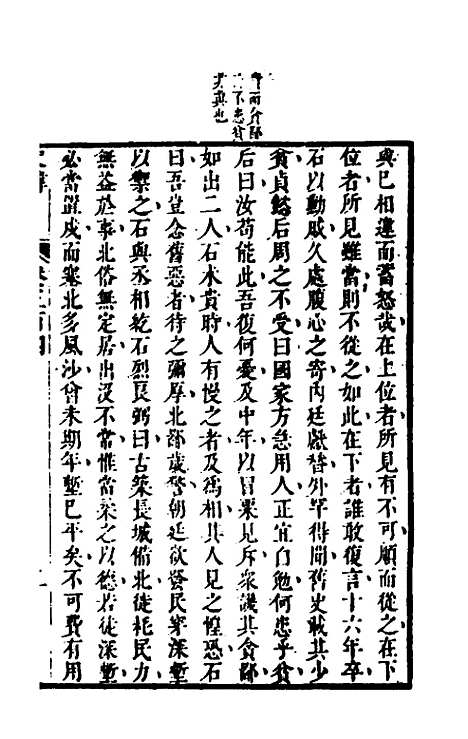 而介隙
不患貧
其真也
典已相違而蓄怒哉在上位者所見有不可順而從之在下
位者所見雖當則不從之如此在下者誰敢復言十六年卒
石以勳戚久處腹心之寄內廷獻替外罕得聞舊史載其少
貧貞懿后周之不受曰國家方急用人正宜自勉何患乎貧
后曰汝苟能此吾復何憂及中年以冒粟見斥衆譏其貪鄙
如出二人石未貴時人有慢之者及爲相其人見之惶恐石
曰吾豈念舊惡者待之彌厚北部歲警朝廷欲發民穿深塹
以禦之石與丞相紇石烈良弼曰古築長城備北徒耗民力
無益於事北俗無定居出沒不常惟當柔之以德若徒深塹
必當置戍而塞北多風沙曾未期年塹已平矣不可費有用